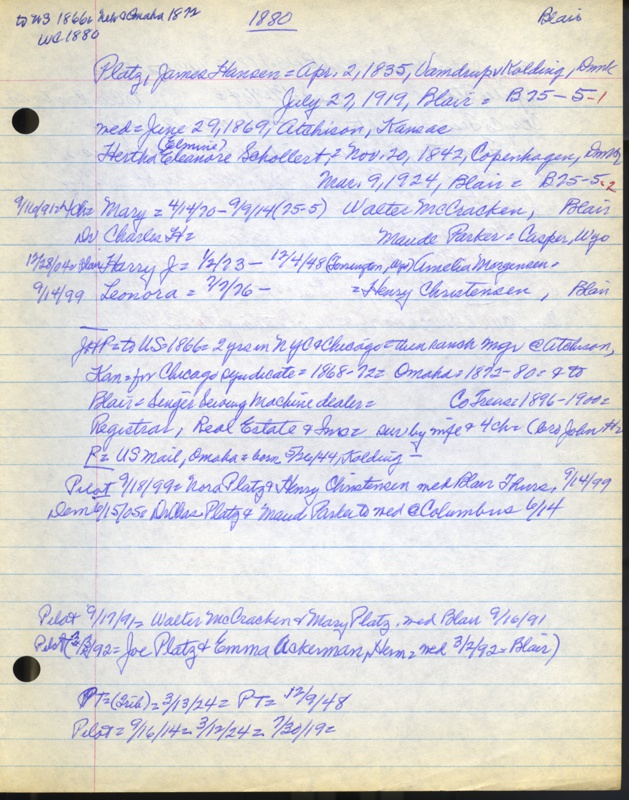 to US 1866 = Neb & Omaha 1872
WC 1880
1880
Blair
Platz, James Hansen = Apr. 2, 1835, Vamdrup, Kolding, Dmk
July 27, 1919, Blair = B75-5-1
med = June 29, 1869, Atchison, Kansas
(Elmine)
Hertha Eleanore Schollert, = Nov. 20, 1842, Copenhagen, Dmk
Mar. 9, 1924, Blair = B75-5-2
9/16/91 Ch = Mary = 4/14/70 - 9/9/14 (75-5) Walter McCracken, Blair
Dr Charles H = Maude Parker = Casper, Wyo
12/28/04 = Blair Harry J = 1/2/73 - 12/4/48 (Torrington, Wyo) Amelia Morgensen =
9/14/99 Leonora = 7/7/76 - = Henry Christensen, Blair
JHP = to US = 1866 = 2 yrs in NYC & Chicago = then ranch mgr @ Atchison,
Kan = for Chicago syndicate = 1868-72 = Omaha = 1872-80 = & to
Blair = Singer Sewing Machine dealer = Co Treas = 1896-1900 =
Registrar, Real Estate & Ins = sur by wife & 4 ch = (bro John H =
P = US Mail, Omaha = born 5/26/44, Kolding -
Pilot 9/18/99 = Nora Platz & Henry Christensen med Blair Thurs, 9/14/99
Dem 6/15/05 = Dr Chas Platz & Maud Parker to wed @ Columbus 6/14
Pilot 9/17/91 = Walter McCracken & Mary Platz, med Blair 9/16/91
Pilot /92 = Joe Platz & Emma Ackerman, Herm = med 3/2/92 = Blair)
PT = (Trib) = 3/13/24 = PT = 12/9/48
Pilot = 9/16/14 = 3/12/24 = 7/30/19 =